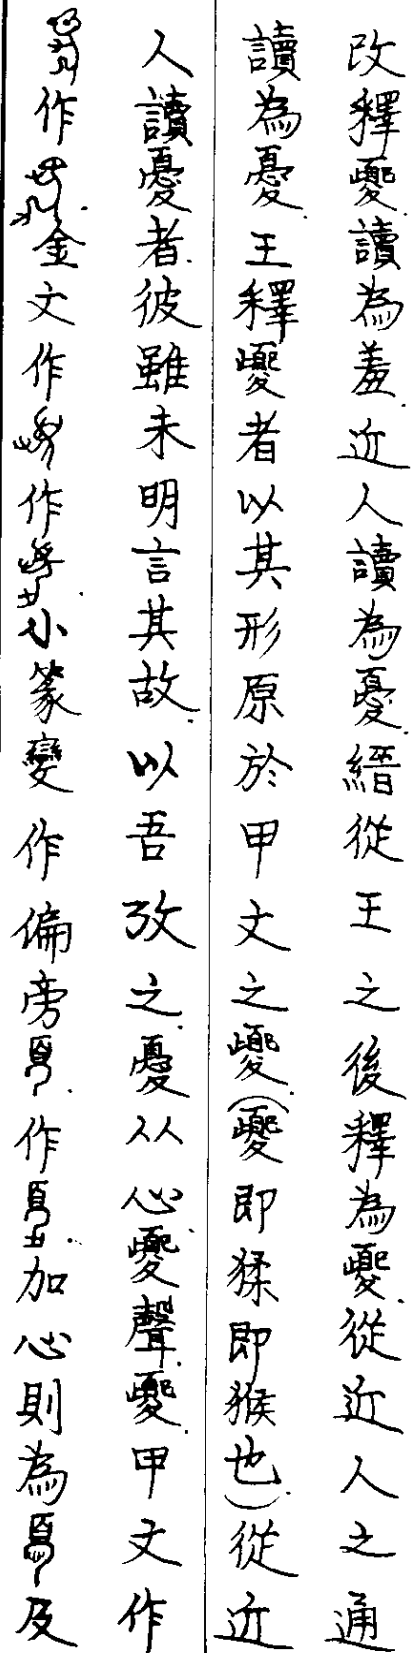 改釋夒讀為羞.近人讀為憂.縉從王之後釋為夒.從近人之通
讀為憂.王釋夒者以其形原於甲文之夒.(夒即猱即猴也).從近
人讀憂者.彼雖未明言其故.以吾攷之.憂从心夒聲.夒.甲文作
作金文作作.小篆變作偏旁.作.加心則為及